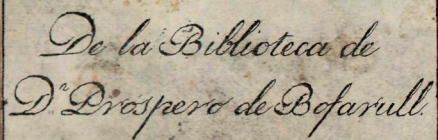 De la Biblioteca de
Dⁿ Prospero de Bofarull.